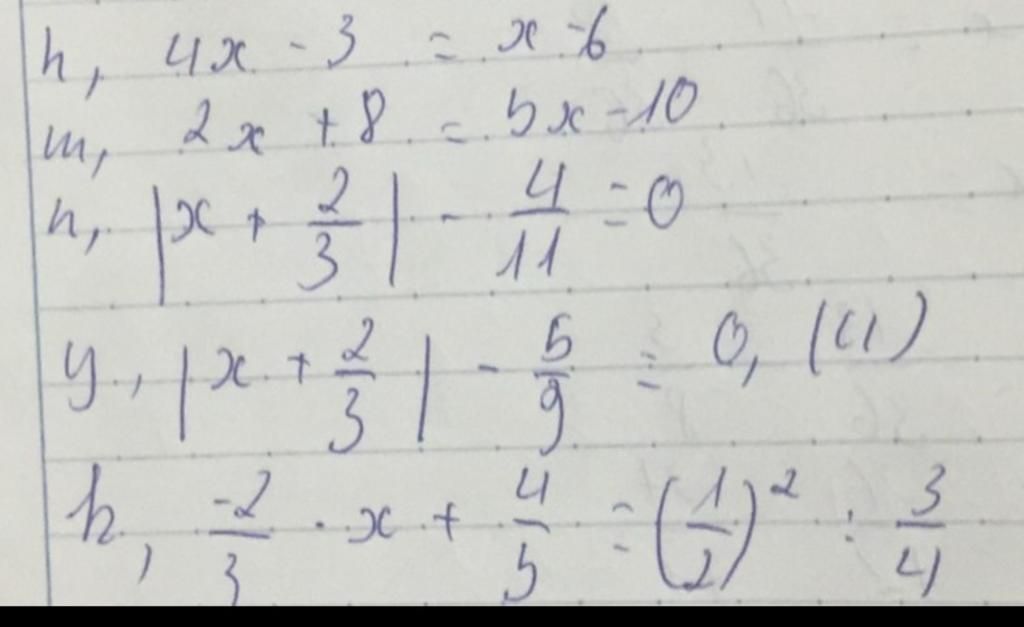 h, 4x - 3 = x - 6
m, 2x + 8 = 5x - 10
n, |x + 2/3| - 4/11 = 0
y, |x + 2/3| - 5/9 = 0, (4)
h, -2/3 . x + 4/5 = (1/2)² : 3/4